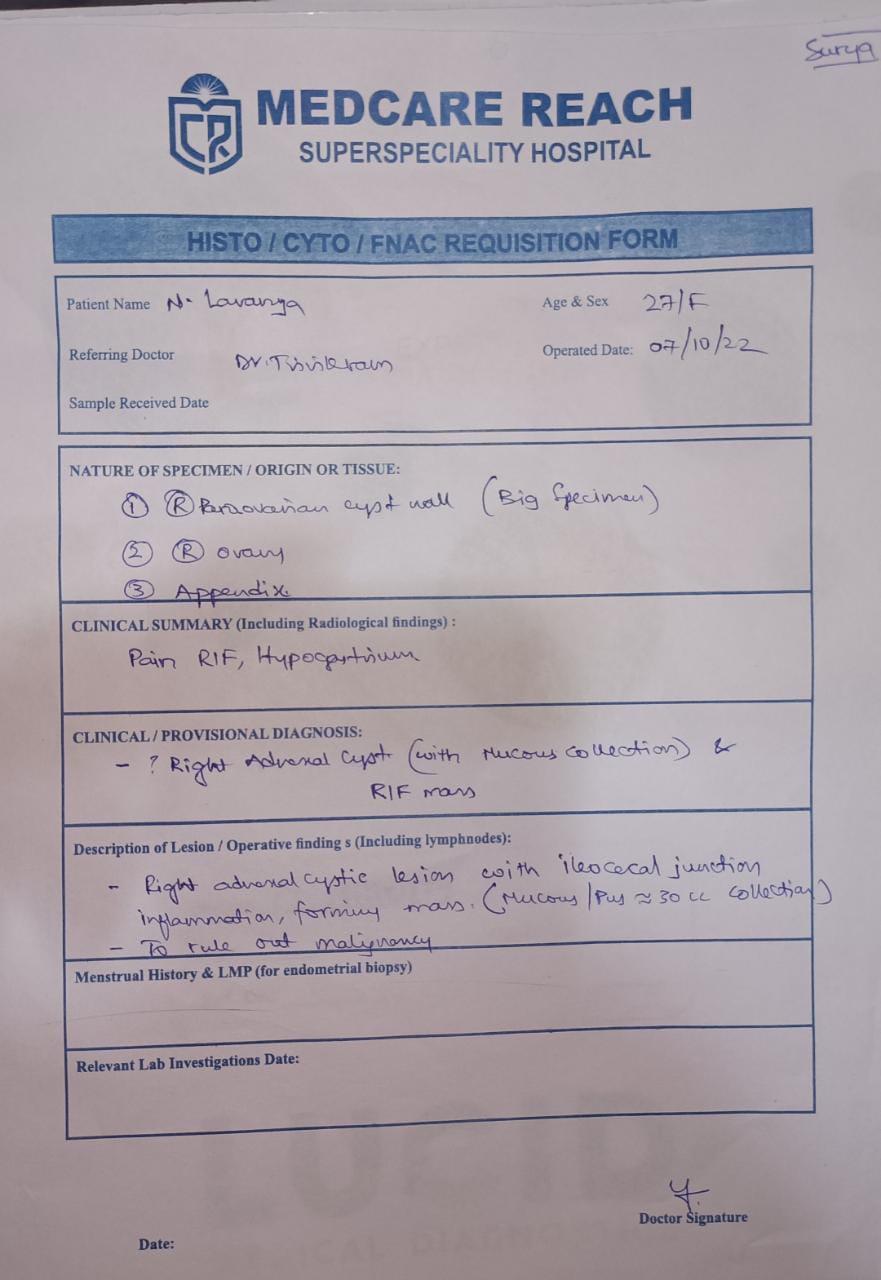 Surya
MEDCARE REACH
SUPERSPECIALITY HOSPITAL
HISTO / CYTO / FNAC REQUISITION FORM
Patient Name N. Lavanya
Age & Sex 27/F
Referring Doctor Dr. Trivikram
Operated Date: 07/10/22
Sample Received Date
NATURE OF SPECIMEN / ORIGIN OR TISSUE:
① Ⓡ Paraovarian cyst wall (Big Specimen)
② Ⓡ ovary
③ Appendix
CLINICAL SUMMARY (Including Radiological findings) :
Pain RIF, Hypogastrium
CLINICAL / PROVISIONAL DIAGNOSIS:
- ? Right Adnexal Cyst (with Mucous collection) &
RIF mass
Description of Lesion / Operative finding s (Including lymphnodes):
- Right adnexal cystic lesion with ileocecal junction
inflammation, forming mass. (Mucous / Pus ≈ 30 cc collection)
- To rule out malignancy
Menstrual History & LMP (for endometrial biopsy)
Relevant Lab Investigations Date:
LUCID
Doctor Signature
Date: